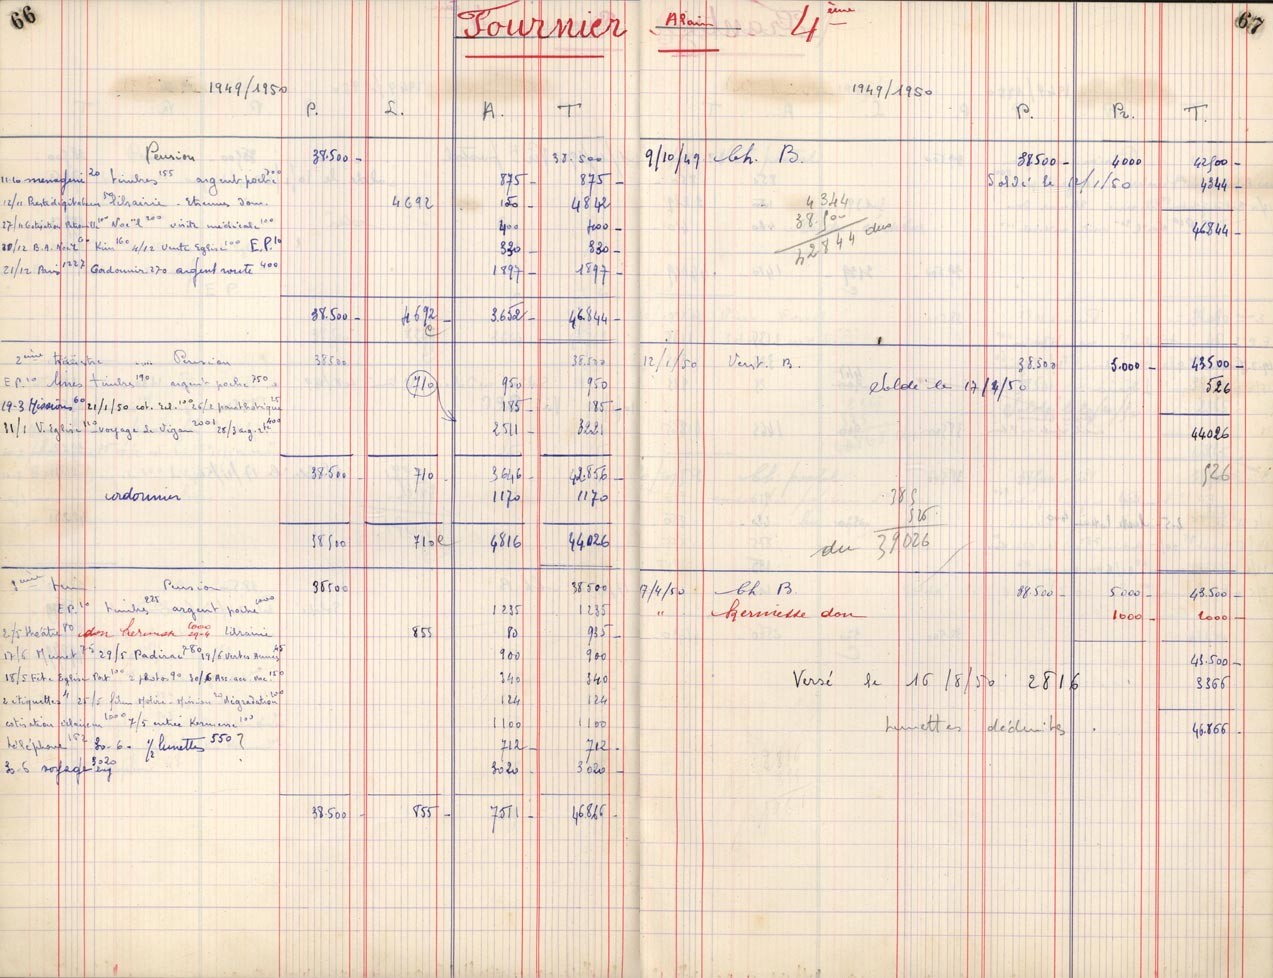 66
Fournier
Alain
4ème
67
1949/1950
P. L. A. T
Pension 38.500 - 38.500
11-10 menagerie 20 timbres 155 argent poche 700 875 - 875 -
12/11 Prestidigitateur 50 librairie - Etienne Dom. 4692 150 - 4842
27/11 Cotisation 100 Noë̈l 200 visite médicale 100 400 400 -
B.A. Noël 60 Kim 160 4/12 Vente Eglise 100 E.P. 10 330 - 330 -
21/12 Paris 1227 Cordonnier 270 argent route 400 1897 - 1897 -
38.500 - 4692 - 3.652 - 46.844 -
c
2ème trimestre Pension 38500 38.500
E P. 10 livres timbres 190 argent poche 750 710 950 950
19-3 Missions 60 21/1/50 cot. Ed. 100 26/2 25 185 - 185 -
31/1 V. Eglise 120 voyage de Vizan 2001 28/3 arg. 400 2511 - 3221
38.500 - 710 - 3646 - 42.856 -
cordonnier 1170 1170
38500 710 c 4816 44026
3ème trim. Pension 38500 38500
E.P. 10 timbres 225 argent poche 1000 1235 1235
2/5 théâtre 80 don kermesse 1000 29-4 librairie 855 80 935 -
17/6 Minet 75 29/5 Padirac 780 19/6 Vertes Années 45 900 900
18/5 Fête Eglise Port 100 = photos 90 30/6 Ass. au. vac 150 340 340
2 etiquettes 4 25/5 film Molière - Mission 20 dégradation 100 124 124
cotisation 1000 7/5 entrée Kermesse 100 1100 1100
téléphone 162 30.6. ½ lunettes 550 ? 712 - 712 -
30-6 voyage 3020 3020 - 3020 -
38.500 - 855 - 7511 - 46.866 -
1949/1950
P. Pr. T.
9/10/49 Ch. B. 38500 - 4000 42500 -
Soldé le 12/1/50 4344 -
4344
38.500
42844 dus
46844 -
12/1/50 Vert. B. 38.500 5.000 - 43500 -
Soldé le 17/4/50 526
44026
526
385
526
du 39026
7/4/50 Ch B. 38.500 - 5000 - 43.500 -
" Kermesse don 1000 - 1000 -
43.500 -
Versé le 16/8/50 2816 3366
Lunettes déduites . 46.866